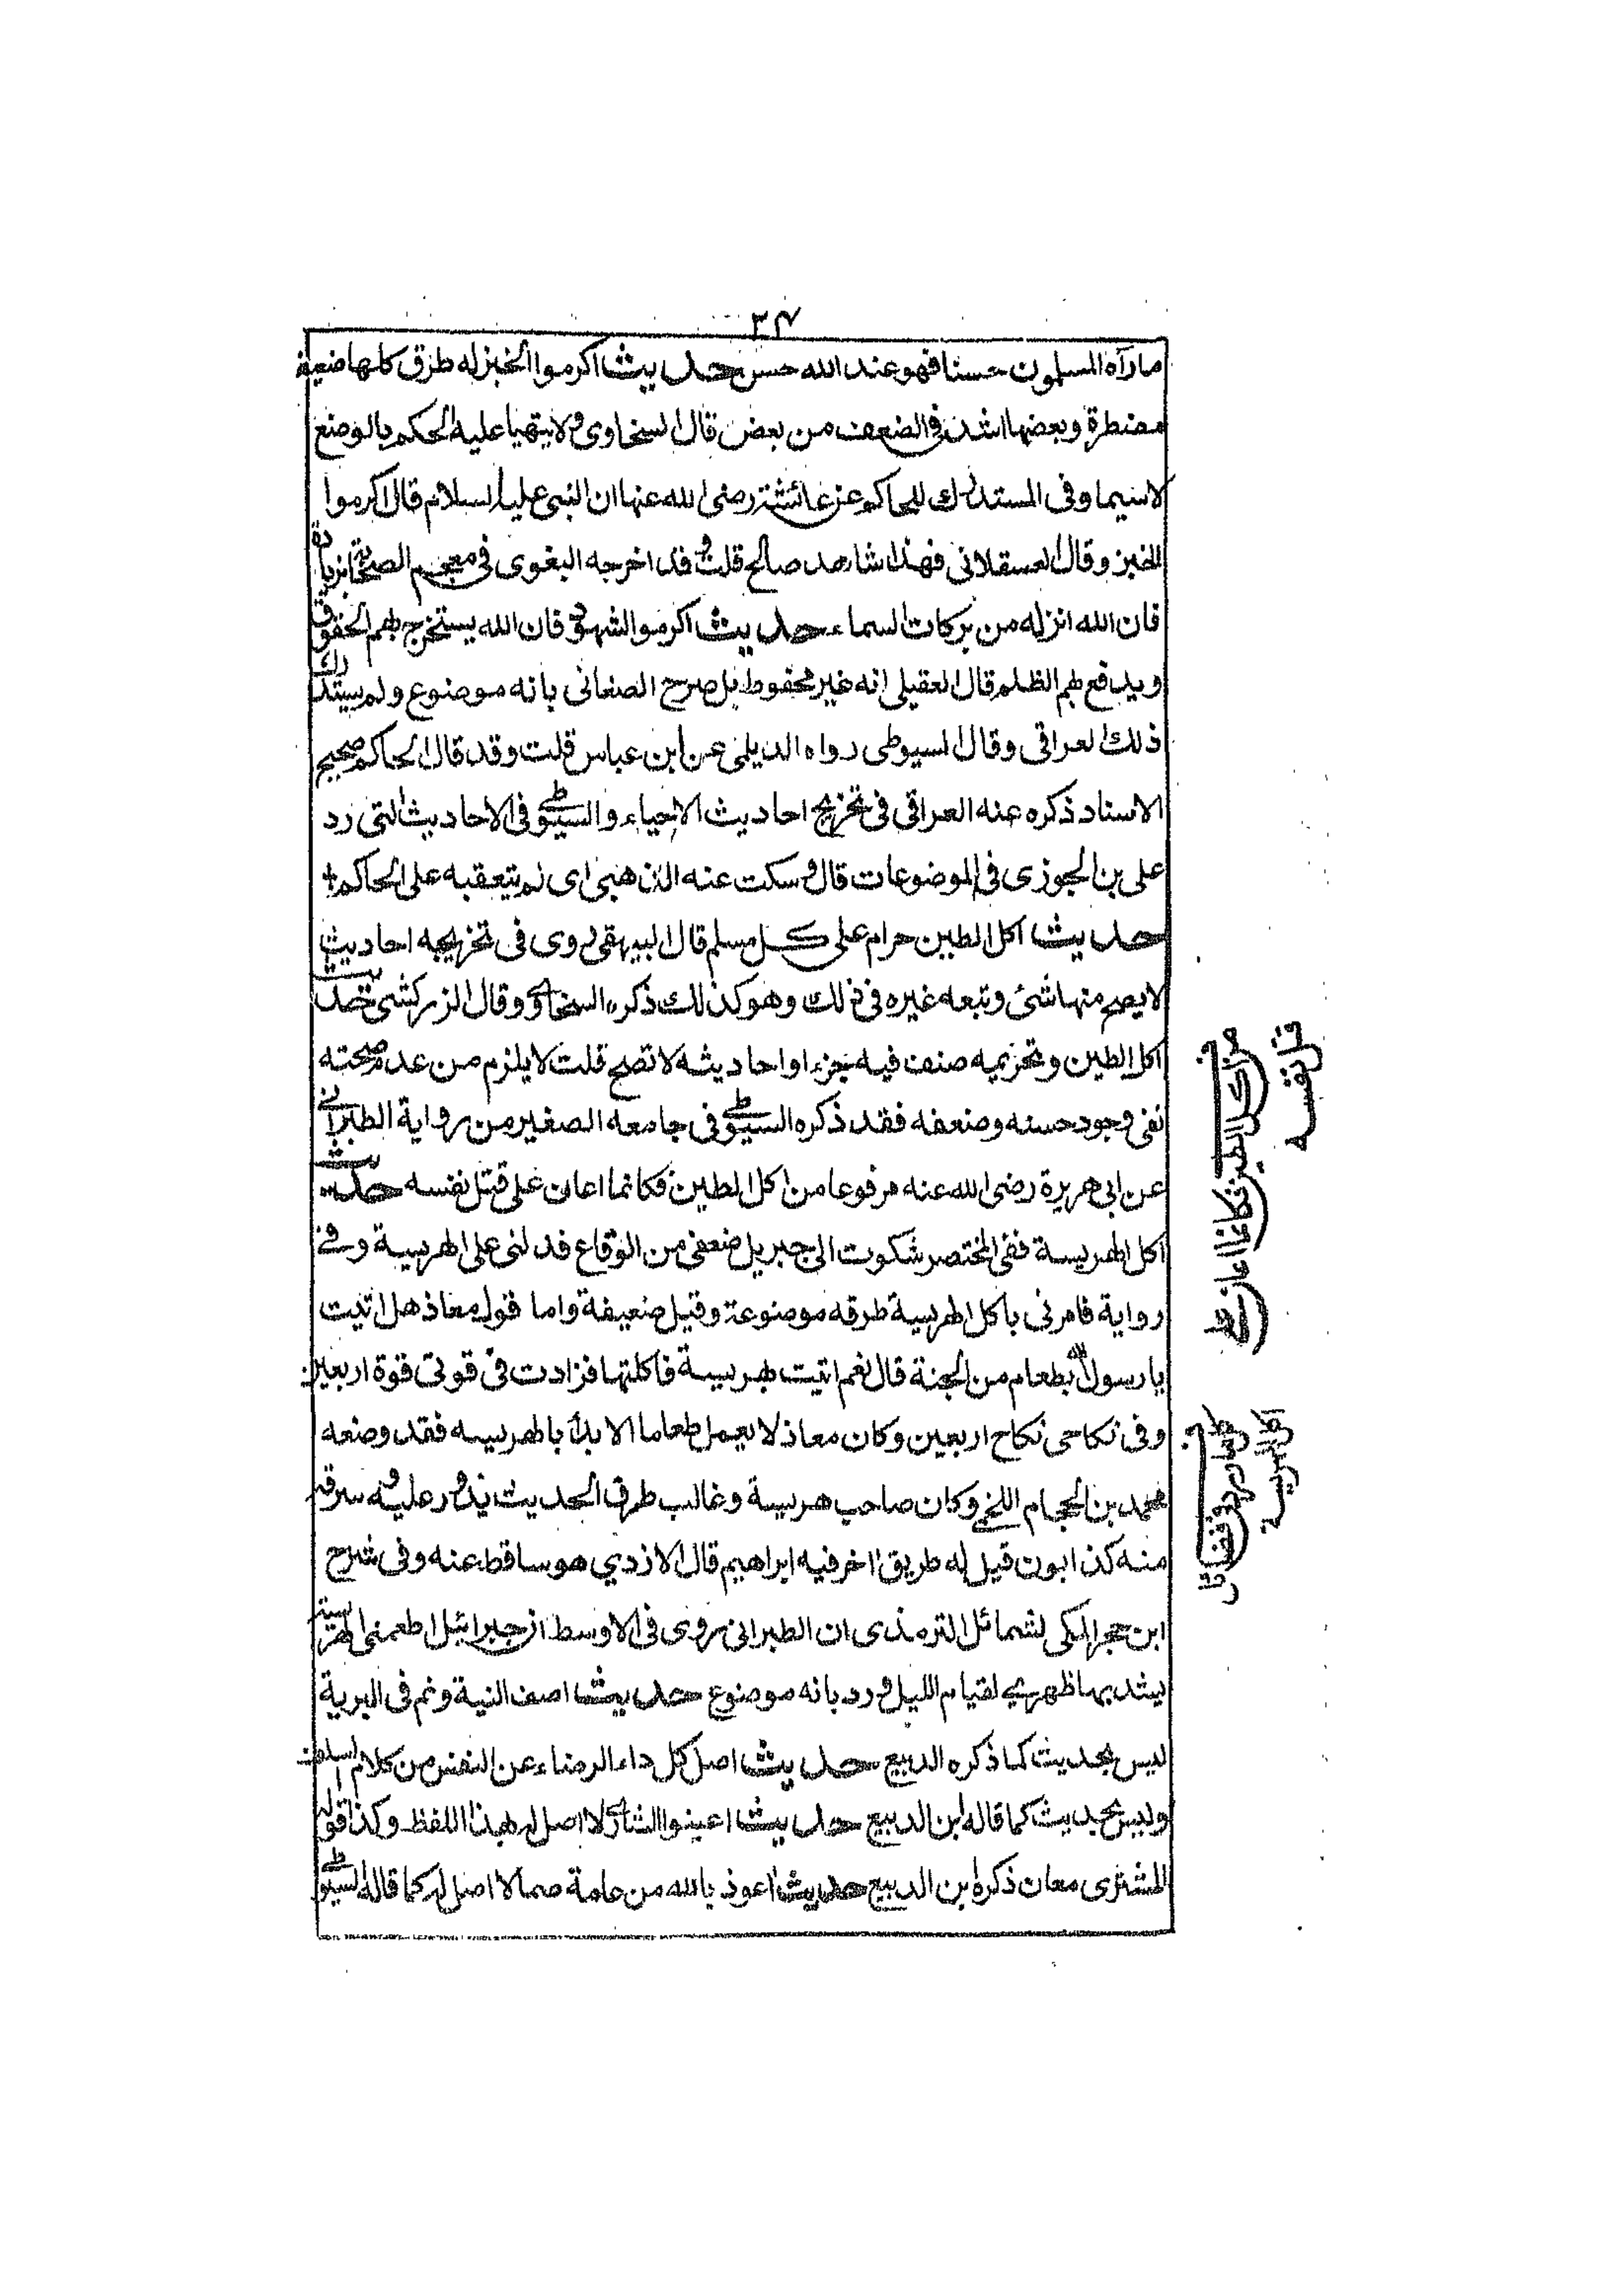 ٢٤
مارآه المسلمون حسنا فهو عند الله حسن حديث اكرموا الخبز له طرق كلها ضعيفة
مضطربة وبعضها اشد في الضعف من بعض قال السخاوى ولا يتهيا عليه الحكم بالوضع
لاسيما وفى المستدرك للحاكم عن عائشة رضى الله عنها ان النبى عليه السلام قال اكرموا
الخبز وقال العسقلانى فهذا شاهد صالح قلت وقد اخرجه البغوى فى معجم الصحابة بزيادة
فان الله انزله من بركات السماء حديث اكرموا الشهود فان الله يستخرج بهم الحقوق
ويدفع بهم الظلم قال العقيلى انه غير محفوظ بل صرح الصنعانى بانه موضوع ولم يستدرك
ذلك العراقى وقال السيوطى رواه الديلمى عن ابن عباس قلت وقد قال الحاكم صحيح
الاسناد ذكره عنه العراقى فى تخريج احاديث الاحياء والسيوطى فى الاحاديث التى رد
على بن الجوزى فى الموضوعات قال وسكت عنه الذهبى اى لم يتعقبه على الحاكم
حديث اكل الطين حرام على كل مسلم قال البيهقى روى فى تخريجه احاديث
لا يصح منها شئ وتبعه غيره فى ذلك وهو كذلك ذكره السخاوى وقال الزركشى حديث
اكل الطين وتحريمه صنف فيه جزء او احاديثه لا تصح قلت لا يلزم من عدم صحته
نفى وجود حسنه وضعفه فقد ذكره السيوطى فى جامعه الصغير من رواية الطبرانى
عن ابى هريرة رضى الله عنه مرفوعا من اكل الطين فكانما اعان على قتل نفسه حديث
اكل الهريسة ففى المختصر شكوت الى جبريل ضعفى من الوقاع فدلنى على الهريسة وفى
رواية فامرنى باكل الهريسة طرقه موضوعة وقيل ضعيفة واما قول معاذ هل اتيت
يا رسول الله بطعام من الجنة قال نعم اتيت بهريسة فاكلتها فزادت فى قوتى قوة اربعين
وفى نكاحى نكاح اربعين وكان معاذ لا يعمل طعاما الا بدأ بالهريسه فقد وضعه
محمد بن الحجام اللخمى وكان صاحب هريسة وغالب طرق الحديث يدور عليه وسرقه
منه كذابون قيل له طريق اخر فيه ابراهيم قال الازدي هو ساقط عنه وفى شرح
ابن حجر المكى لشمائل الترمذى ان الطبرانى روى فى الاوسط ان جبرائيل اطعمنى الهريسة
يشد بها ظهري لقيام الليل ورد بانه موضوع حديث اصف النية ونم فى البرية
ليس بحديث كما ذكره الدبيع حديث اصل كل داء الرضاء عن النفس من كلام السلف
وليس بحديث كما قاله ابن الدبيع حديث اعينوا الشارى لا اصل له بهذا اللفظ وكذا قوله
المشترى معان ذكره ابن الدبيع حديث اعوذ بالله من حامة صما لا اصل له كما قاله السيوطى
من اكل الطين فكانما اعان على
قتل نفسه
اكل الهريسة